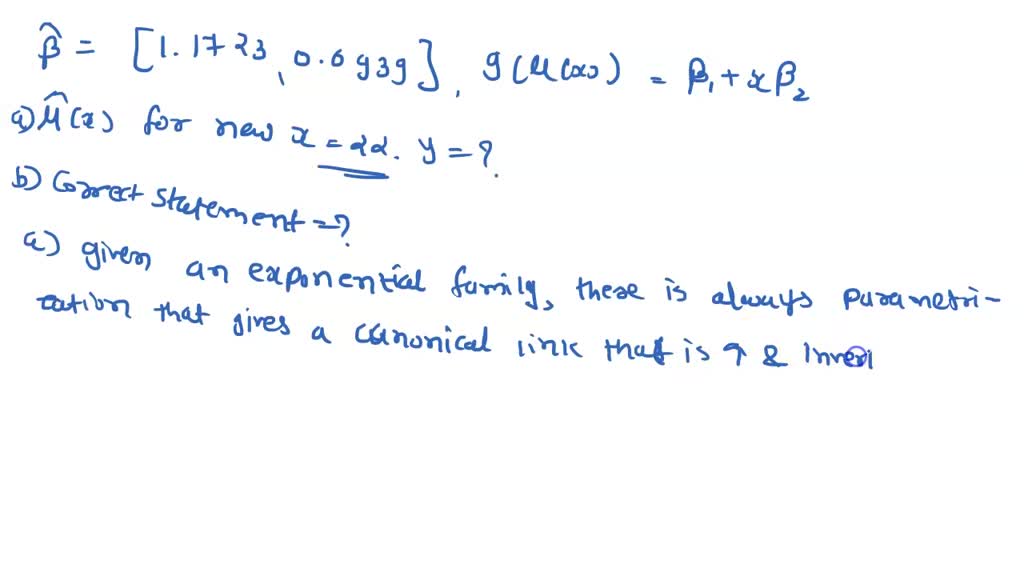 β̂ = [1.1723, 0.6939], g(μ(x)) = β₁ + xβ₂
a) μ̂(x) for new x = 22. y = ?
b) Correct statement = ?
a) given an exponential family, there is always parametri-
zation that gives a canonical link that is ↑ & inveri